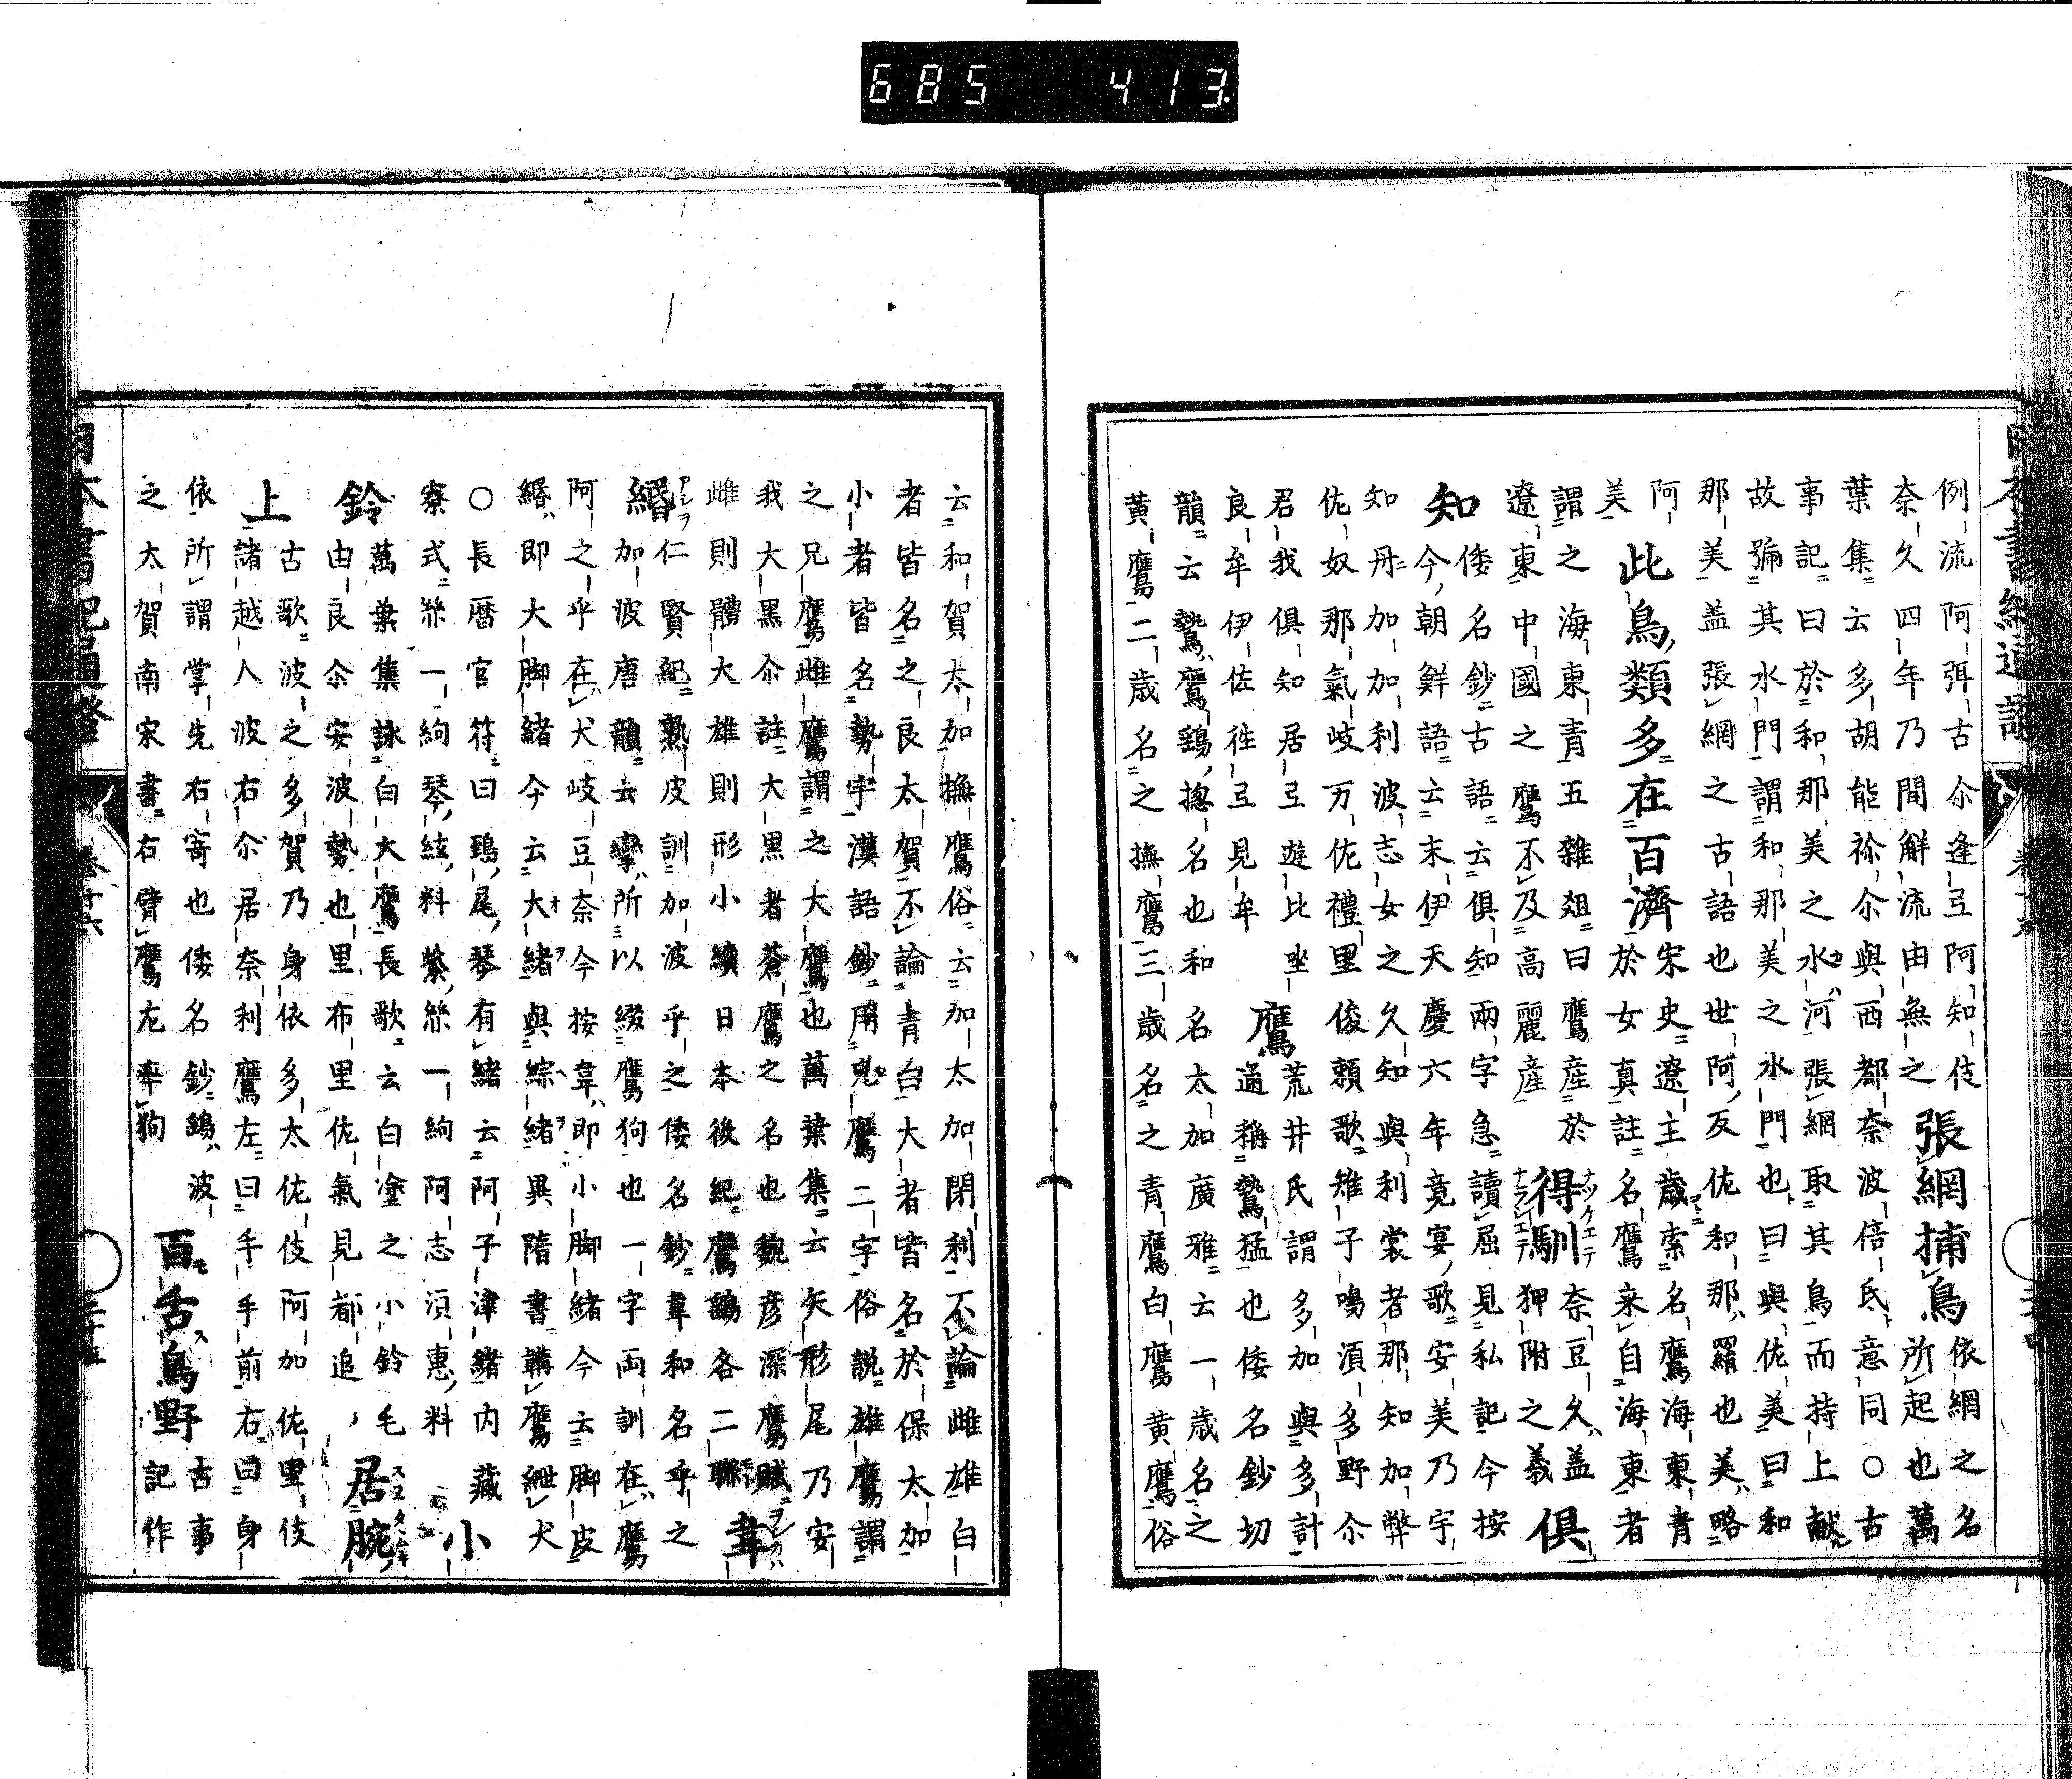 685 413
例流阿弭古尒逢弖阿知伎張網捕鳥依網之名
奈久四年乃間解流由無之所起也萬
葉集云多胡能祢尒與西都奈波倍氏意同○古
事記曰於和那美之水河張網取其鳥而持上献
故號其水門謂和那美之水門也曰與佐美曰和
那美盖張網之古語也世阿反佐和那羂也美略
阿
美此鳥類多在百濟宋史遼主歳索名鷹海東青
於女真註名鷹来自海東者
謂之海東青五雜爼曰鷹産於得馴奈豆久盖
遼東中國之鷹不及高麗産狎附之義俱
知倭名鈔古語云俱知兩字急讀屈見私記今按
今朝鮮語云末伊天慶六年竟宴歌安美乃宇
知丹加加利波志女之久知與利裳者那知加弊
佐奴那氣岐万佐禮里俊頼歌雉子鳴湏多野尒
君我俱知居弖遊比坐鷹荒井氏謂多加與多計
良牟伊佐徃弖見牟通稱鷙猛也倭名鈔切
韻云鷙鷹鷂揔名也和名太加廣雅云一歳名之
黄鷹二歳名之撫鷹三歳名之青鷹白鷹黄鷹俗
云和賀太加撫鷹俗云加太加閇利不論雌雄白
者皆名之良太賀不論青白大者皆名於保太加
小者皆名勢宇漢語鈔用兄鷹二字俗説雄鷹謂
之兄鷹雌鷹謂之大鷹也萬葉集云矢形尾乃安
我大黒尒註大黒者蒼鷹之名也魏彦深鷹賦
雌則體大雄則形小續日本後紀鷹鷂各二聯韋
緡仁賢紀熟皮訓加波乎之倭名鈔韋和名乎之
加波唐韻云攣所以綴鷹狗也一字両訓在鷹
阿之乎在犬岐豆奈今按韋即小脚緒今云脚皮
緡即大脚緒今云大緒與綜緒異隋書講鷹紲犬
○長暦官符曰鵄尾琴有緒云阿子津緒内藏
寮式漈一絇琴絃料紫絲一絇阿志湏惠料小
鈴萬葉集詠白大鷹長歌云白塗之小鈴毛
由良尒安波勢也里布里佐氣見都追居腕
古歌波之多賀乃身依多太佐伎阿加佐里伎
上諸越人波右尒居奈利鷹左曰手手前右曰身
依所謂掌先右寄也倭名鈔鷂波百舌鳥野古事
之太賀南宋書右臂鷹左牽狗記作